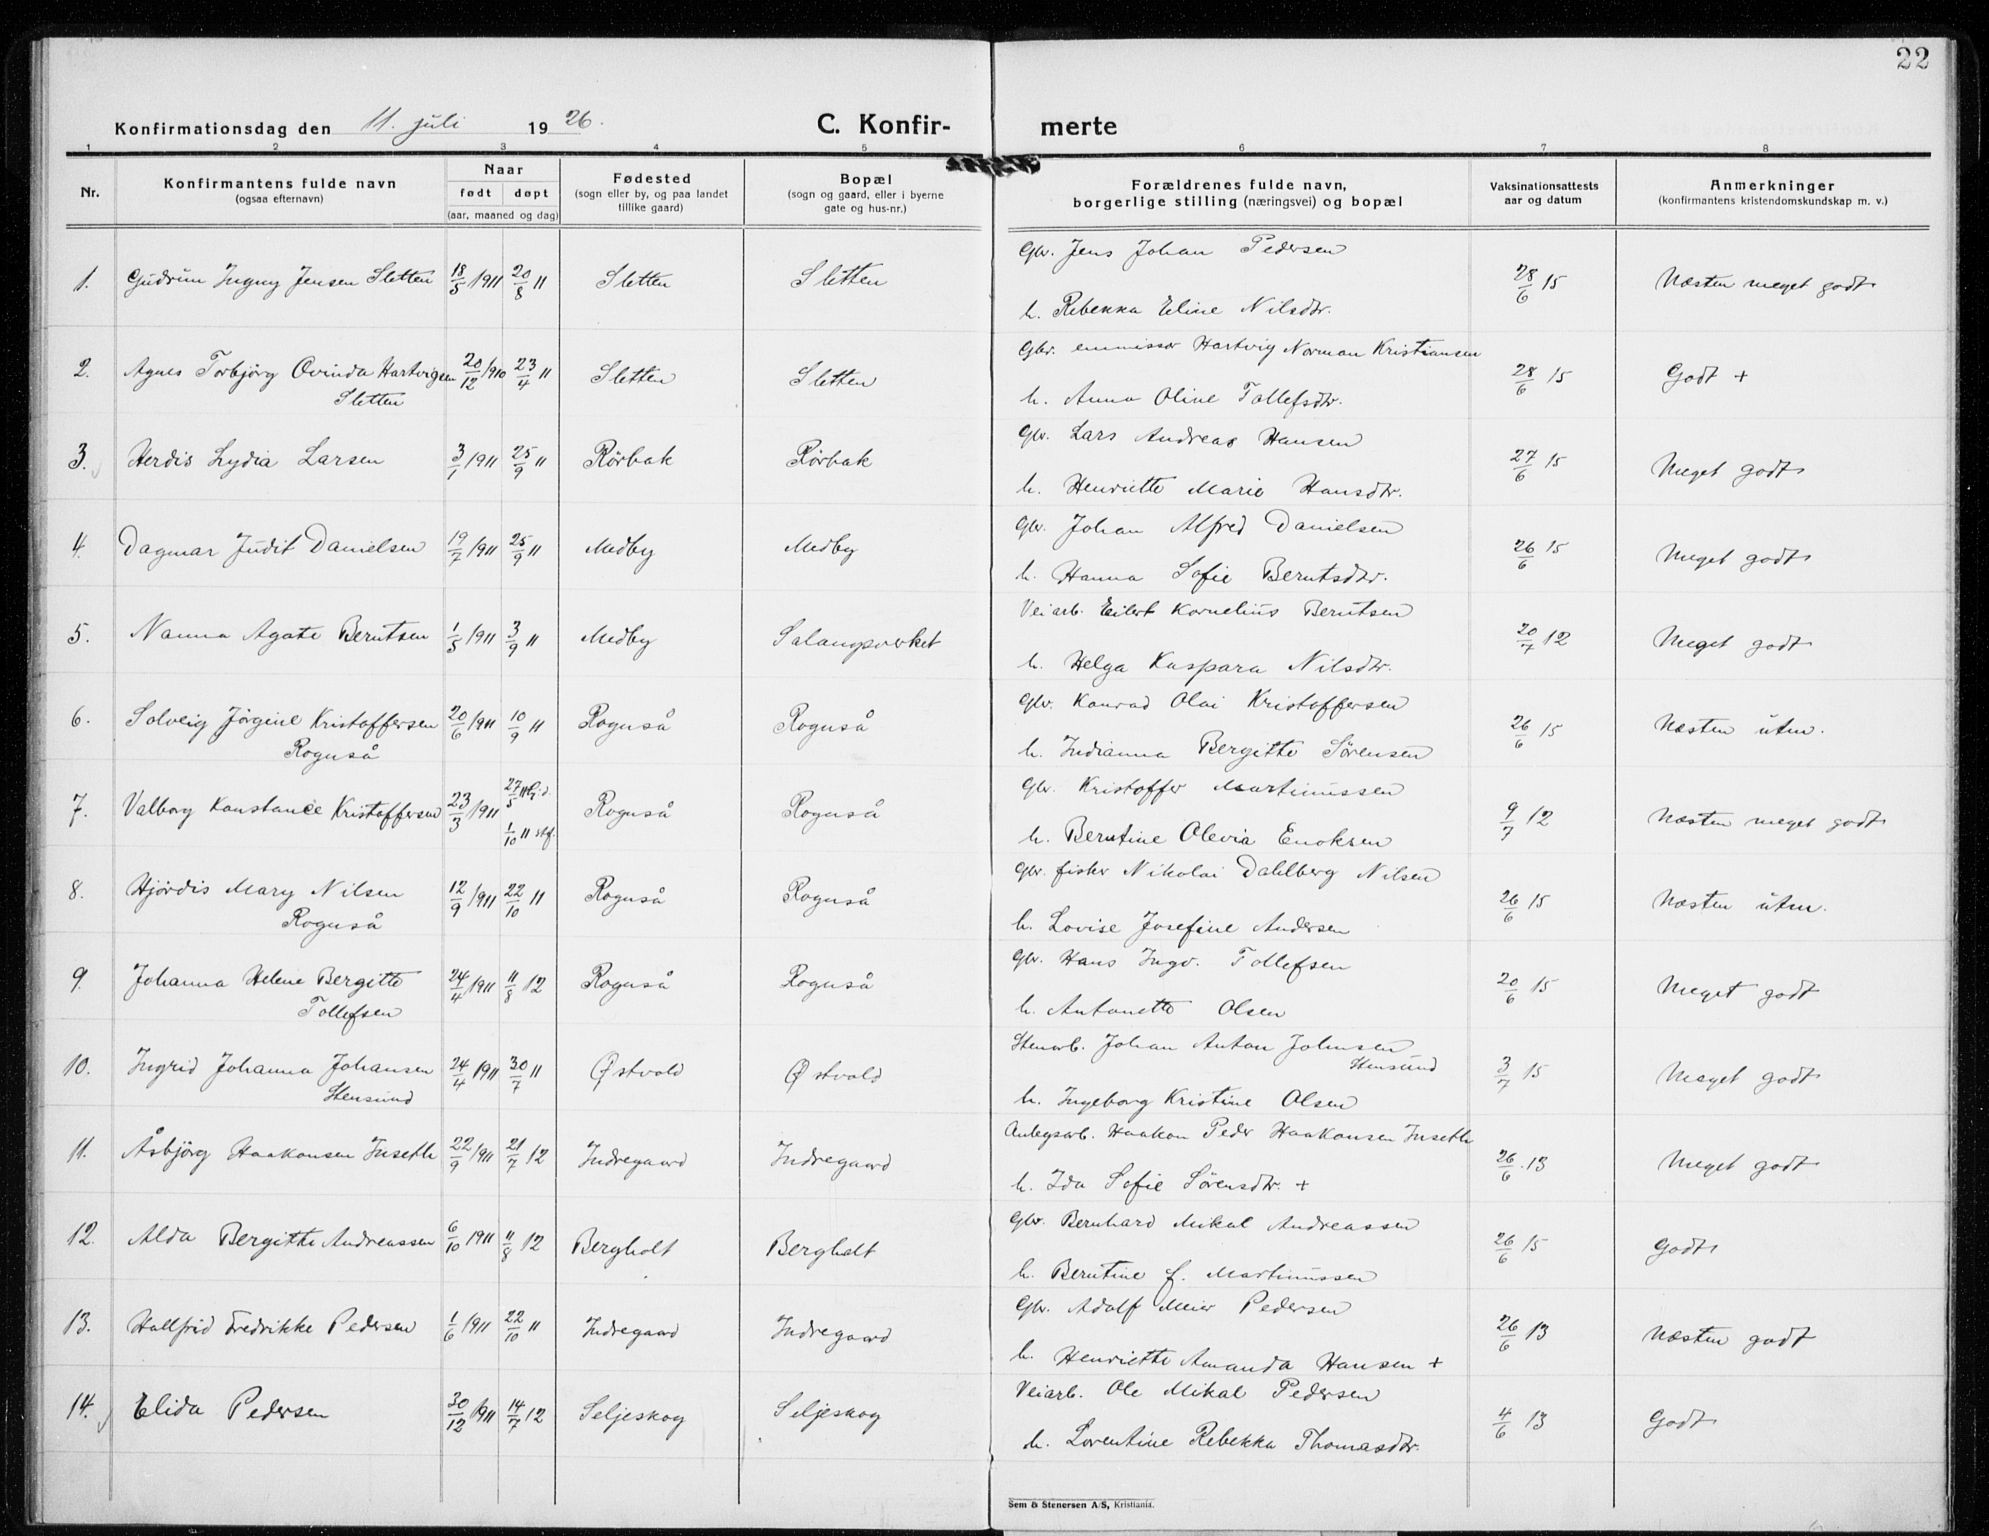 22
Konfirmationsdag den 11. juli 1926.
C. Konfirmerte
1 2 3 4 5 6 7 8
Nr. Konfirmantens fulde navn (ogsaa efternavn) Naar født døpt (aar, maaned og dag) Fødested (sogn eller by, og paa landet tillike gaard) Bopæl (sogn og gaard, eller i byerne gate og hus-nr.) Forældrenes fulde navn, borgerlige stilling (næringsvei) og bopæl Vaksinationsattests aar og datum Anmerkninger (konfirmantens kristendomskundskap m. v.)
Gbr. Jens Johan Pedersen
1. Gudrun Ingny Jensen Sletten 18/5 1911 20/8 11 Sletten Sletten 28/6 15 Næsten meget godt
h. Rebekka Eline Nilsdtr.
Gbr. emmissær Hartvig Norman Kristiansen
2. Agnes Torbjörg Ovinda Hartvigsen 20/12 1910 23/4 11 Sletten Sletten 28/6 15 Godt +
Sletten h. Anna Oline Tollefsdtr.
Gbr. Lars Andreas Hansen
3. Herdis Lydia Larsen 3/1 1911 25/9 11 Rörbak Rörbak 27/6 15 Meget godt
h. Henriette Marie Hansdtr.
Gbr. Johan Alfred Danielsen
4. Dagmar Judit Danielsen 19/7 1911 25/9 11 Medby Medby 26/6 15 Meget godt
h. Hanna Sofie Berntsdtr.
Veiarb. Eilert Kornelius Berntsen
5. Nanna Agate Berntsen 1/5 1911 3/9 11 Medby Salangsverket 20/7 12 Meget godt
h. Helga Kaspara Nilsdtr.
Gbr. Konrad Olai Kristoffersen
6. Solveig Jörgine Kristoffersen 20/6 1911 10/9 11 Rognså Rognså 26/6 15 Næsten utm.
Rognså h. Indianna Bergitte Sörensen
Gbr. Kristoffer Martinussen
7. Valborg Konstance Kristoffersen 23/3 1911 27/5 11 hj.d. 1/10 11 stf. Rognså Rognså 9/7 12 Næsten meget godt
h. Berntine Olevia Enoksen
Gbr. fisker Nikolai Dahlberg Nilsen
8. Hjördis Mary Nilsen 12/9 1911 22/10 11 Rognså Rognså 26/6 15 Næsten utm.
Rognså h. Lovise Josefine Andersen
Gbr. Hans Ingv. Tollefsen
9. Johanna Helene Bergitte 24/4 1911 11/8 12 Rognså Rognså 20/6 15 Meget godt
Tollefsen h. Antonette Olsen
Stenarb. Johan Anton Johnsen
Stensund
10. Ingrid Johanna Johansen 24/4 1911 30/7 11 Østvold Østvold 3/7 15 Meget godt
Stensund h. Ingeborg Kristine Olsen
Anlegsarb. Haakon Peder Haakonsen Inseth
11. Åsbjörg Haakonsen Inseth 22/9 1911 21/7 12 Indregaard Indregaard 26/6 13 Meget godt
h. Ida Sofie Sörensdtr. +
Gbr. Bernhard Mikal Andreassen
12. Alda Bergitte Andreassen 6/10 1911 11/8 12 Bergholt Bergholt 26/6 15 Godt
h. Berntine f. Martinussen
Gbr. Adolf Meier Pedersen
13. Hallfrid Fredrikke Pedersen 1/6 1911 22/10 11 Indregaard Indregaard 26/6 13 Næsten godt
h. Henriette Amanda Hansen +
Veiarb. Ole Mikal Pedersen
14. Elida Pedersen 30/12 1911 14/7 12 Seljeskog Seljeskog 4/6 13 Godt
h. Lorentine Rebekka Thomasdtr.
Sem & Stenersen A/S, Kristiania.